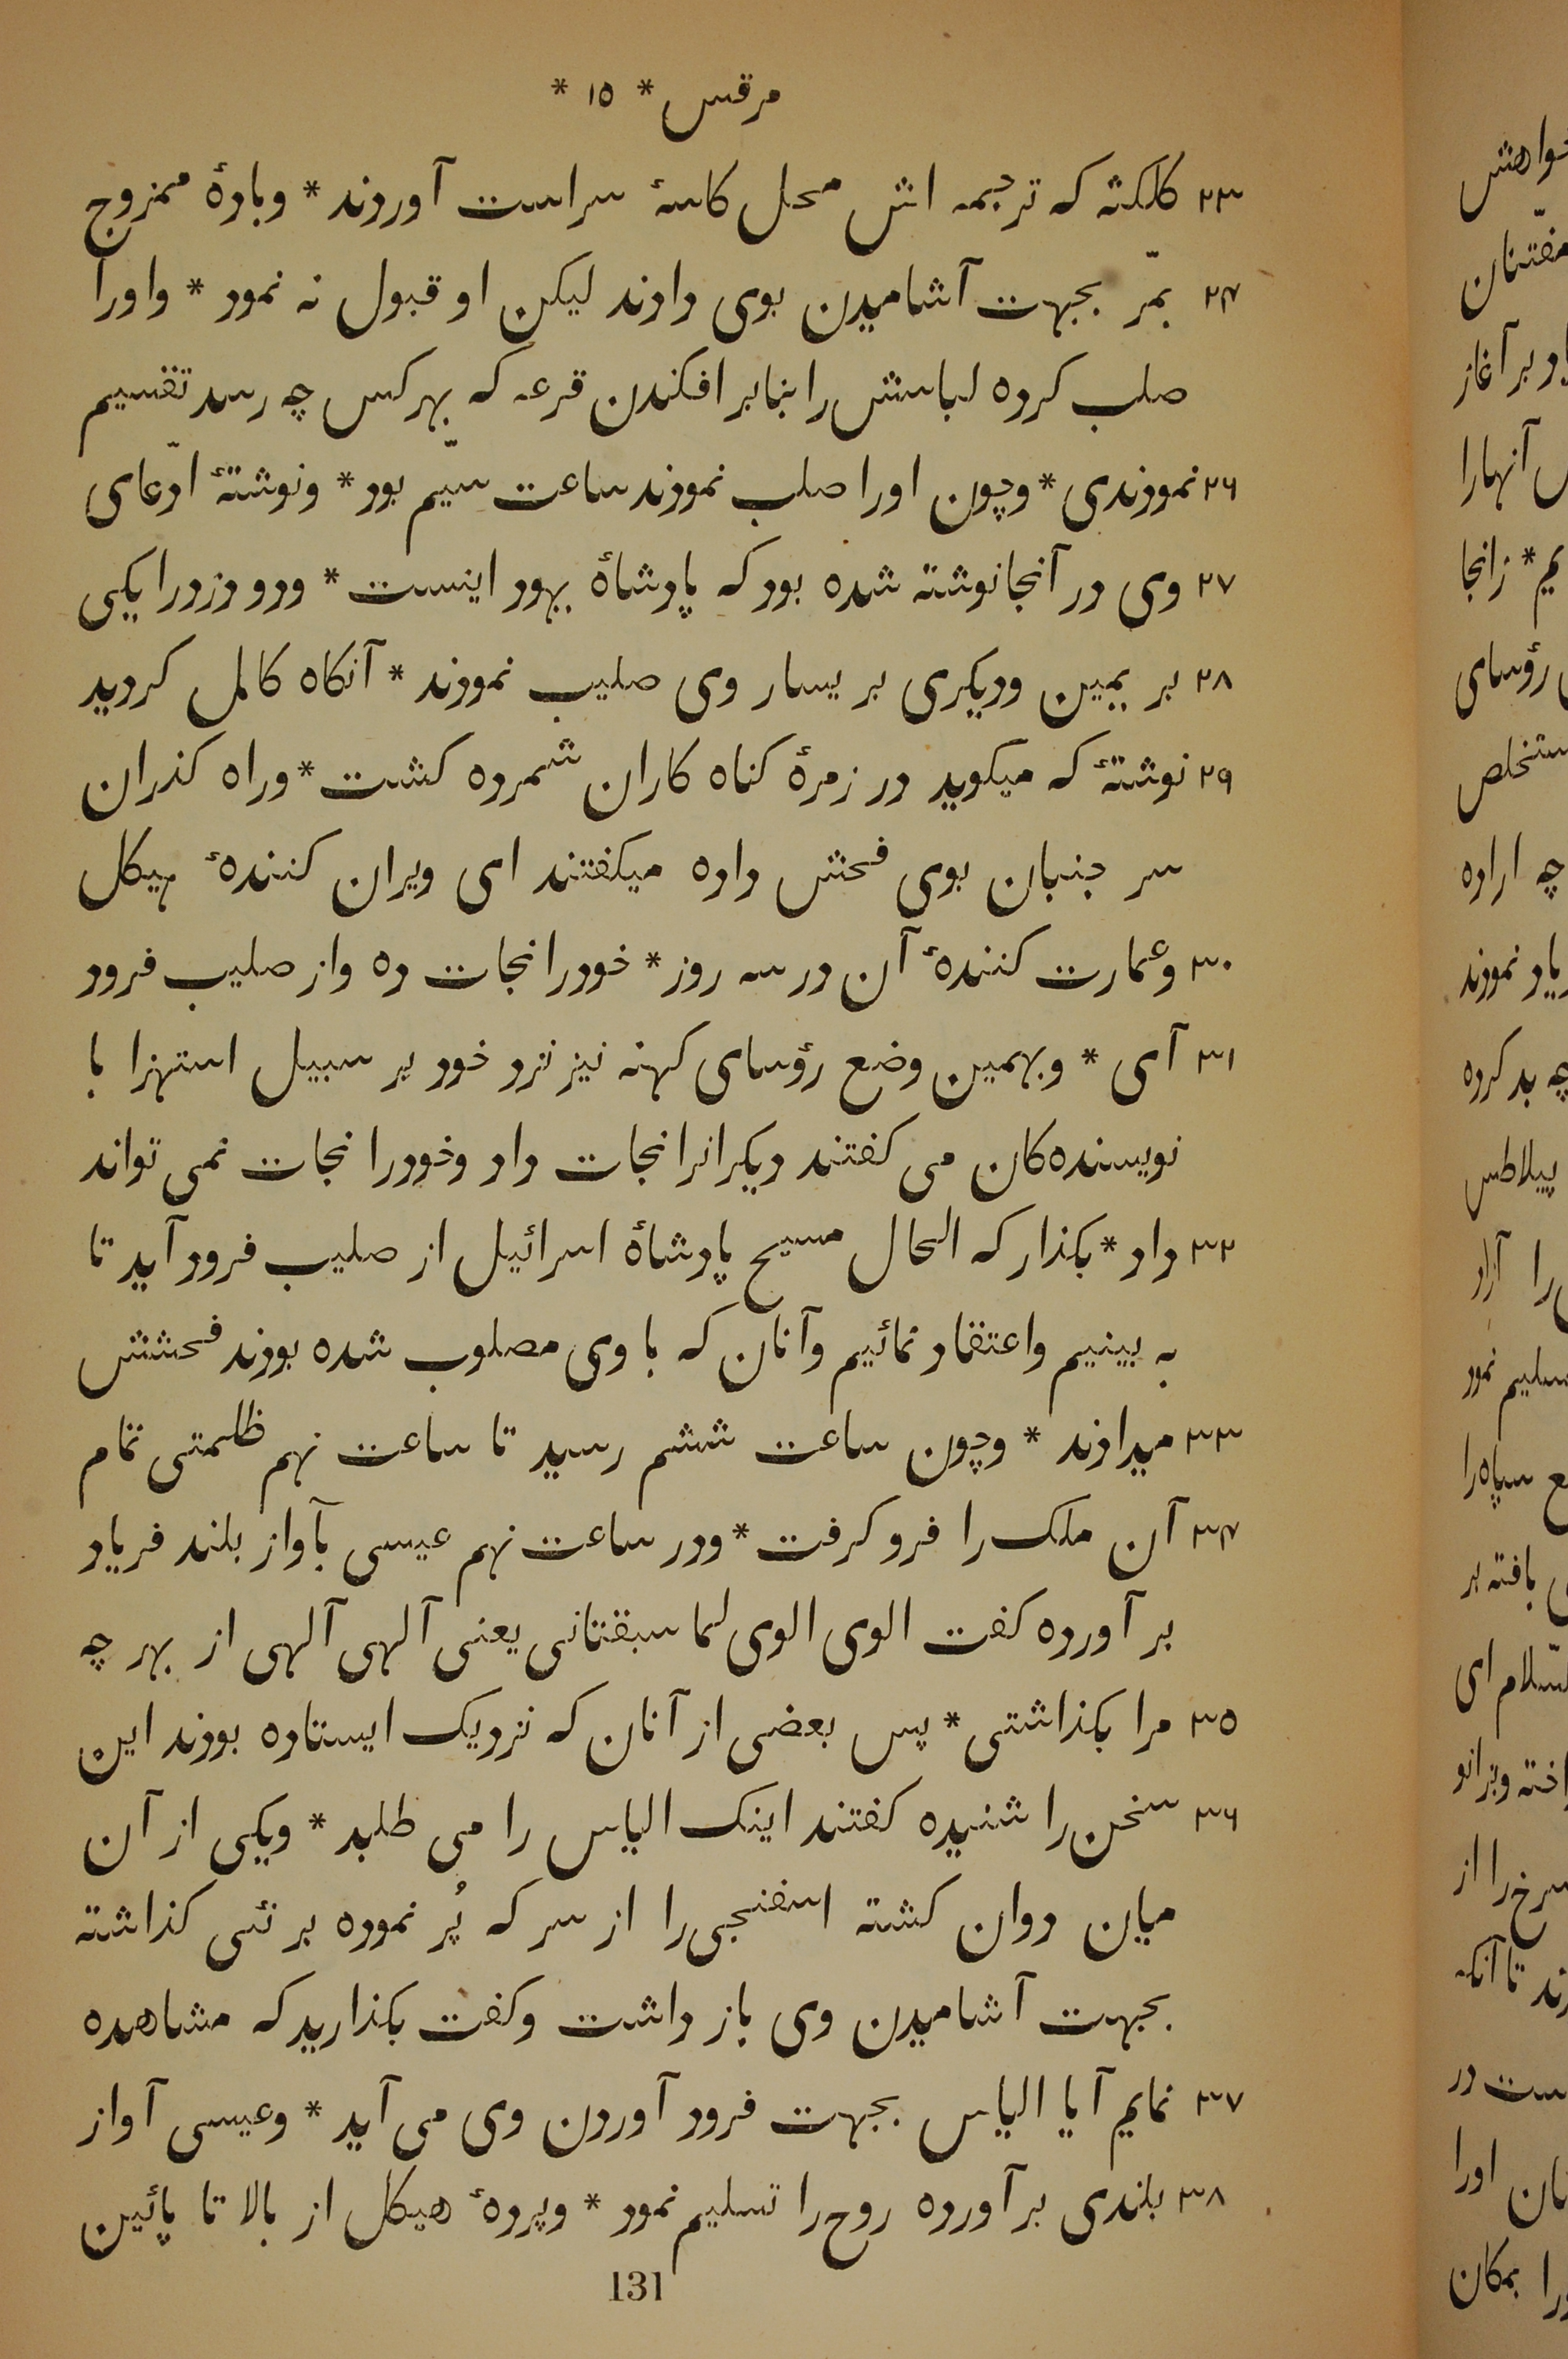 مرقس * ۱۵ *
۲۳ کلکتّه که ترجیمه اش محل کاسهٔ سراست آوردند * وبادهٔ ممزوج
۲۴ بمّر بجهت آشامیدن بوی دادند لیکن او قبول نه نمود * واورا
صلب کرده لباسش را بنابر افکندن قرعه که بهرکس چه رسد تقسیم
۲۶ نمودندی * وچون اورا صلب نمودند ساعت سیّم بود * ونوشتهٔ ادّعای
۲۷ وی در آنجا نوشته شده بود که پادشاهٔ یهود اینست * ودو دزدرا یکی
۲۸ بر یمین ودیکری بر یسار وی صلیب نمودند * آنکاه کامل کردید
۲۹ نوشتهٔ که میکوید در زمرهٔ کناه کاران شمرده کشت * وراه کذران
سر جنبان بوی فحش داده میکفتند ای ویران کنندهٔ هیکل
۳۰ وعمارت کنندهٔ آن در سه روز * خودرا نجات ده واز صلیب فرود
۳۱ آی * وبهمین وضع رؤسای کهنه نیز نزد خود بر سبیل استهزا با
نویسنده کان می کفتند دیکرانرا نجات داد وخودرا نجات نمی تواند
۳۲ داد * بکذار که الحال مسیح پادشاهٔ اسرائیل از صلیب فرود آید تا
به بینیم واعتقاد نمائیم وآنان که با وی مصلوب شده بودند فحشش
۳۳ میدادند * وچون ساعت ششم رسید تا ساعت نهم ظلمتی تمام
۳۴ آن ملک را فرو کرفت * ودر ساعت نهم عیسی بآواز بلند فریاد
بر آورده کفت الوی الوی لما سبقتانی یعنی آلهی آلهی از بهر چه
۳۵ مرا بکذاشتی * پس بعضی از آنان که نزدیک ایستاده بودند این
۳۶ سخن را شنیده کفتند اینک الیاس را می طلبد * ویکی از آن
میان دوان کشته اسفنجی را از سرکه پُر نموده بر نئی کذاشته
بجهت آشامیدن وی باز داشت وکفت بکذارید که مشاهده
۳۷ نمایم آیا الیاس بجهت فرود آوردن وی می آید * وعیسی آواز
۳۸ بلندی بر آورده روح را تسلیم نمود * وپردهٔ هیکل از بالا تا پائین
131